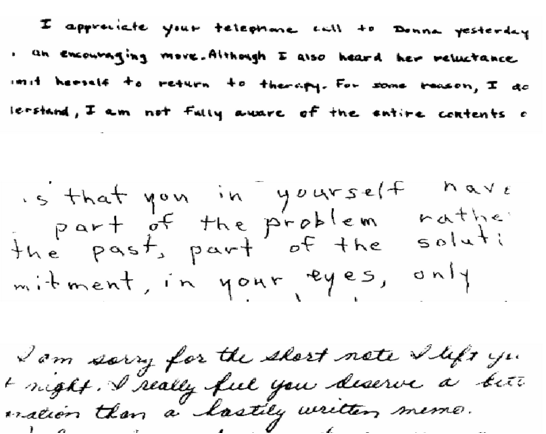 I appreciate your telephone call to Donna yesterday
an encouraging move. Although I also heard her reluctance
mit herself to return to therapy. For some reason, I do
lerstand, I am not fully aware of the entire contents
is that you in yourself have
part of the problem rathe
the past, part of the soluti
mitment, in your eyes, only
I am sorry for the short note I left yu
t night. I really feel you deserve a bett
nation than a hastily written memo.